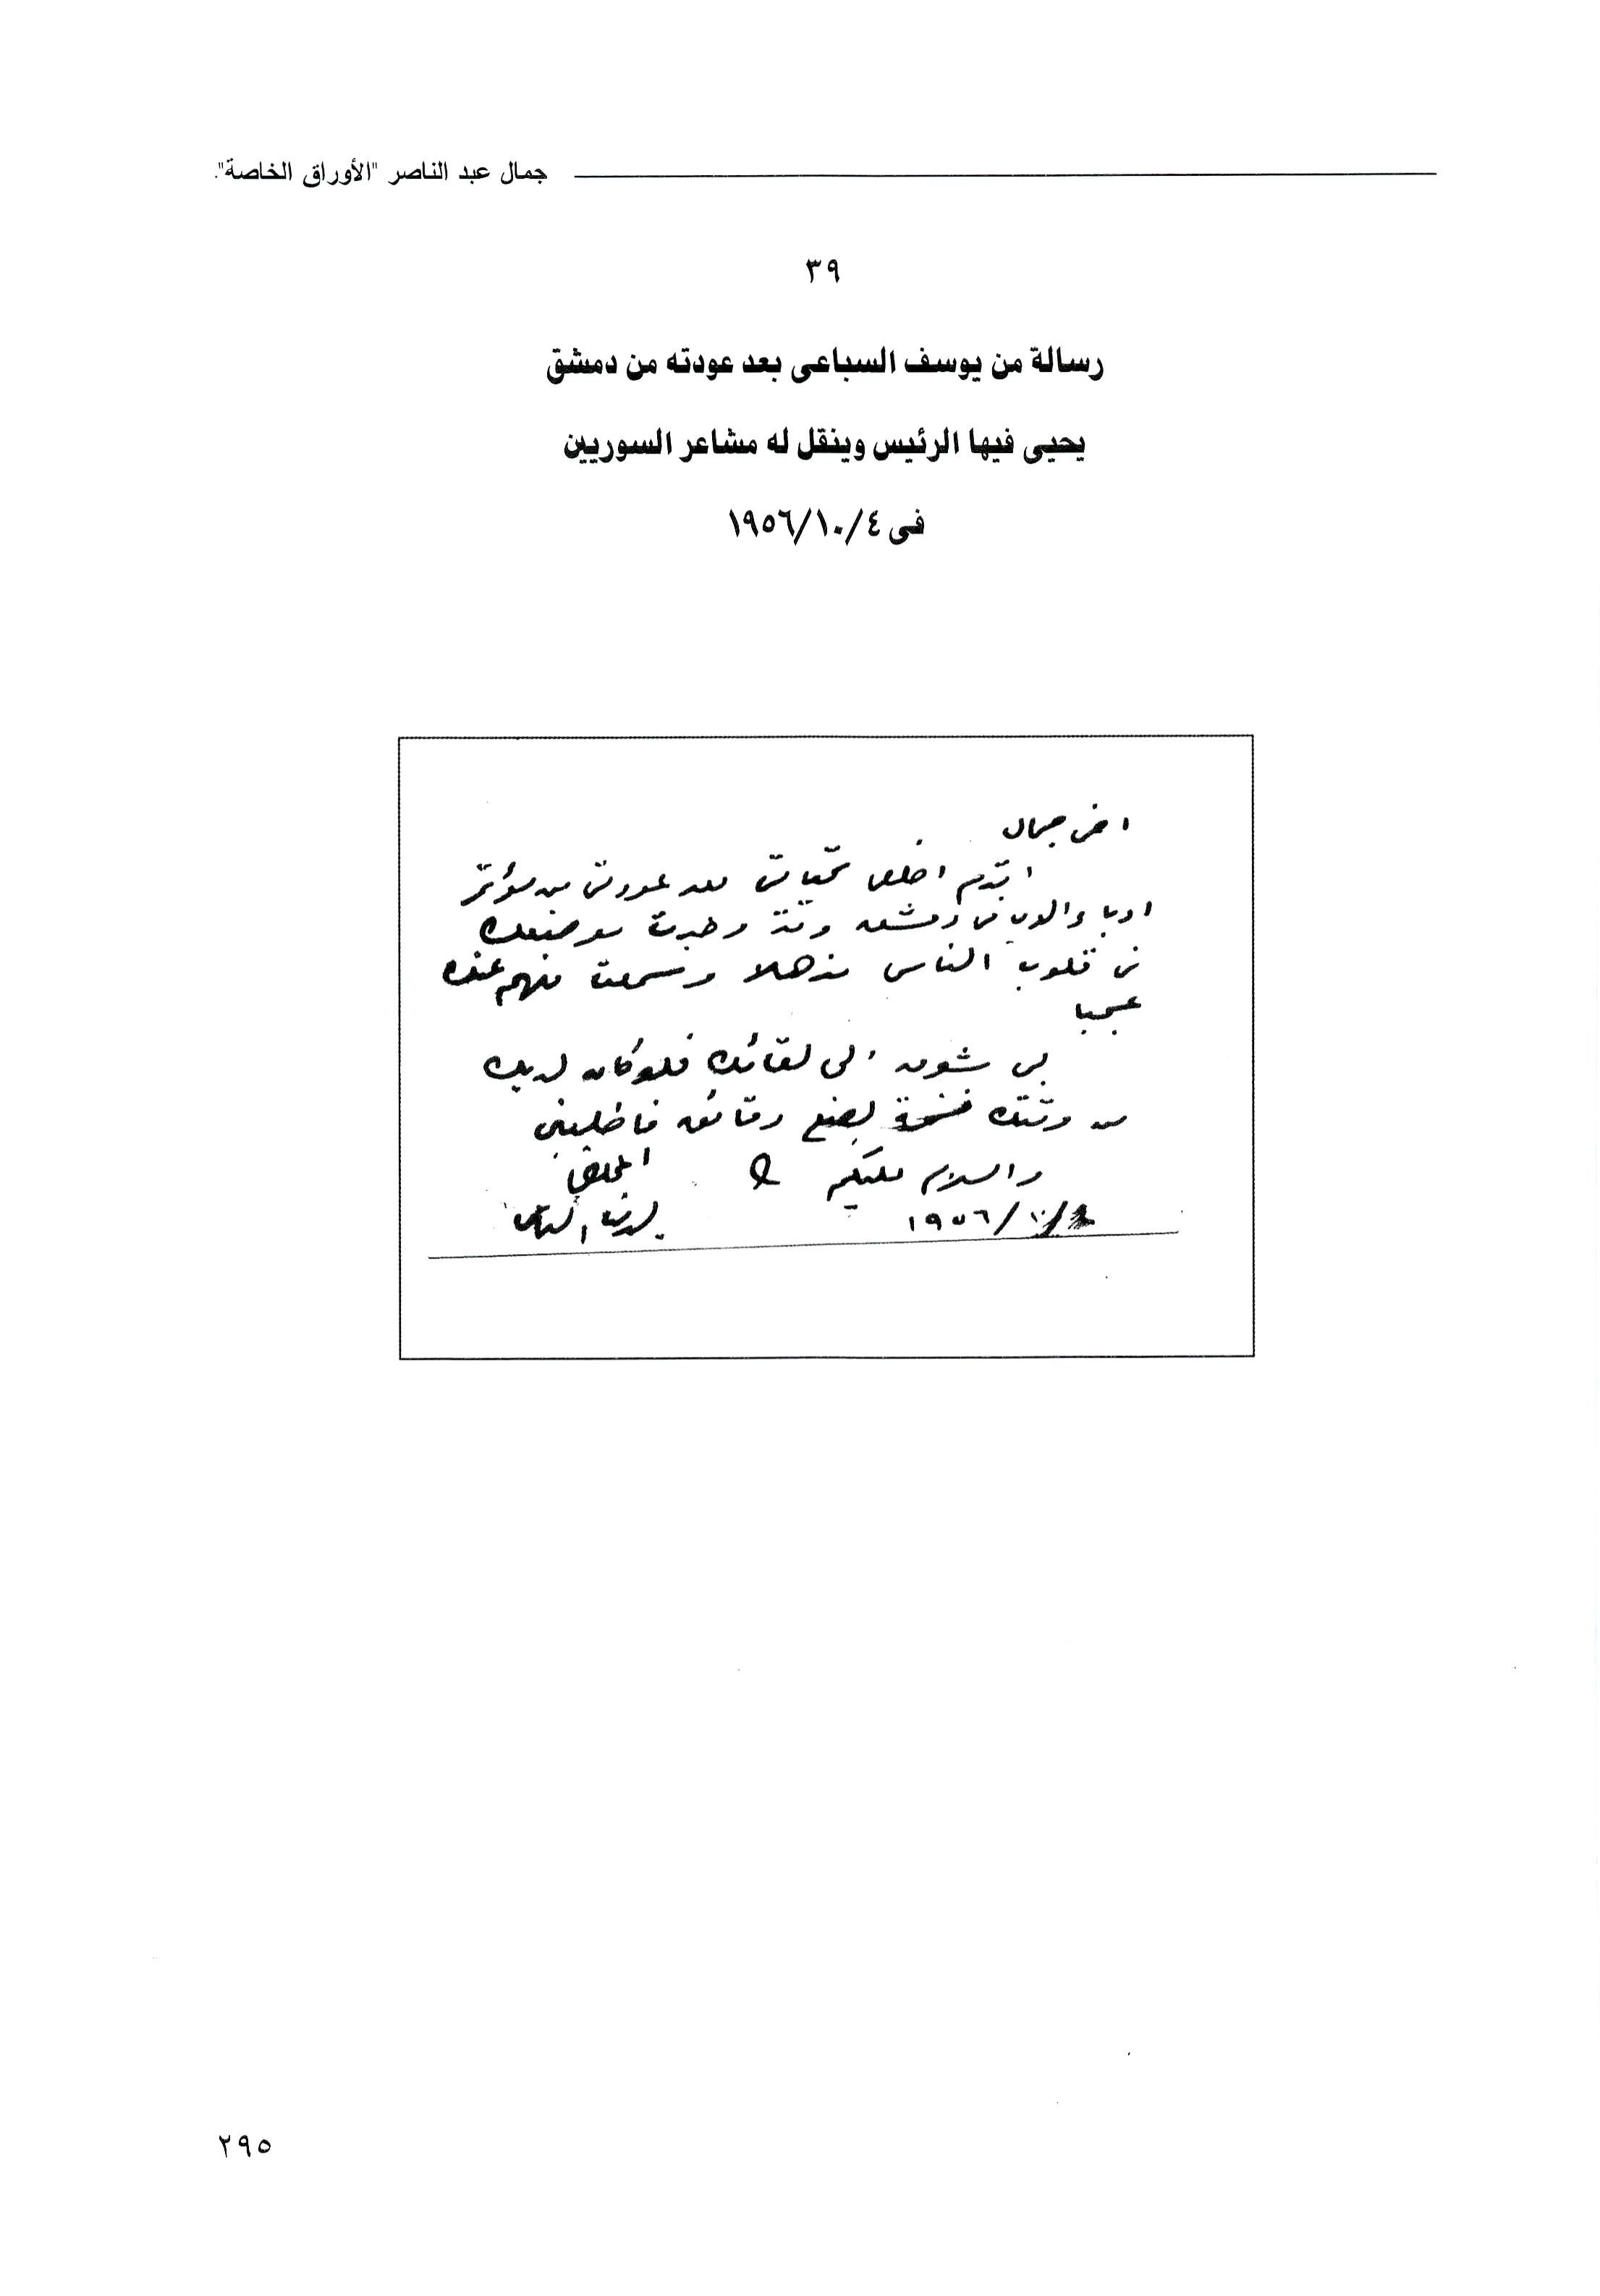 جمال عبد الناصر "الأوراق الخاصة".
٣٩
رسالة من يوسف السباعى بعد عودته من دمشق
يحيى فيها الرئيس وينقل له مشاعر السوريين
فى ٤/١٠/١٩٥٦
اخى جمال
اقدم اخلص تحياتى بعد عودتى من مؤتمر
فى دمشق وقد وجدت موضعك
فى قلوب الناس مذهلا وسمعت منهم عنك
عجبا
بى شوق الى لقائك فلو كان لديك
من وقتك فسحة لبضع دقائق فاطلبنى
والسلام عليكم
المخلص
٤/١٠/١٩٥٦
يوسف السباعى
٢٩٥